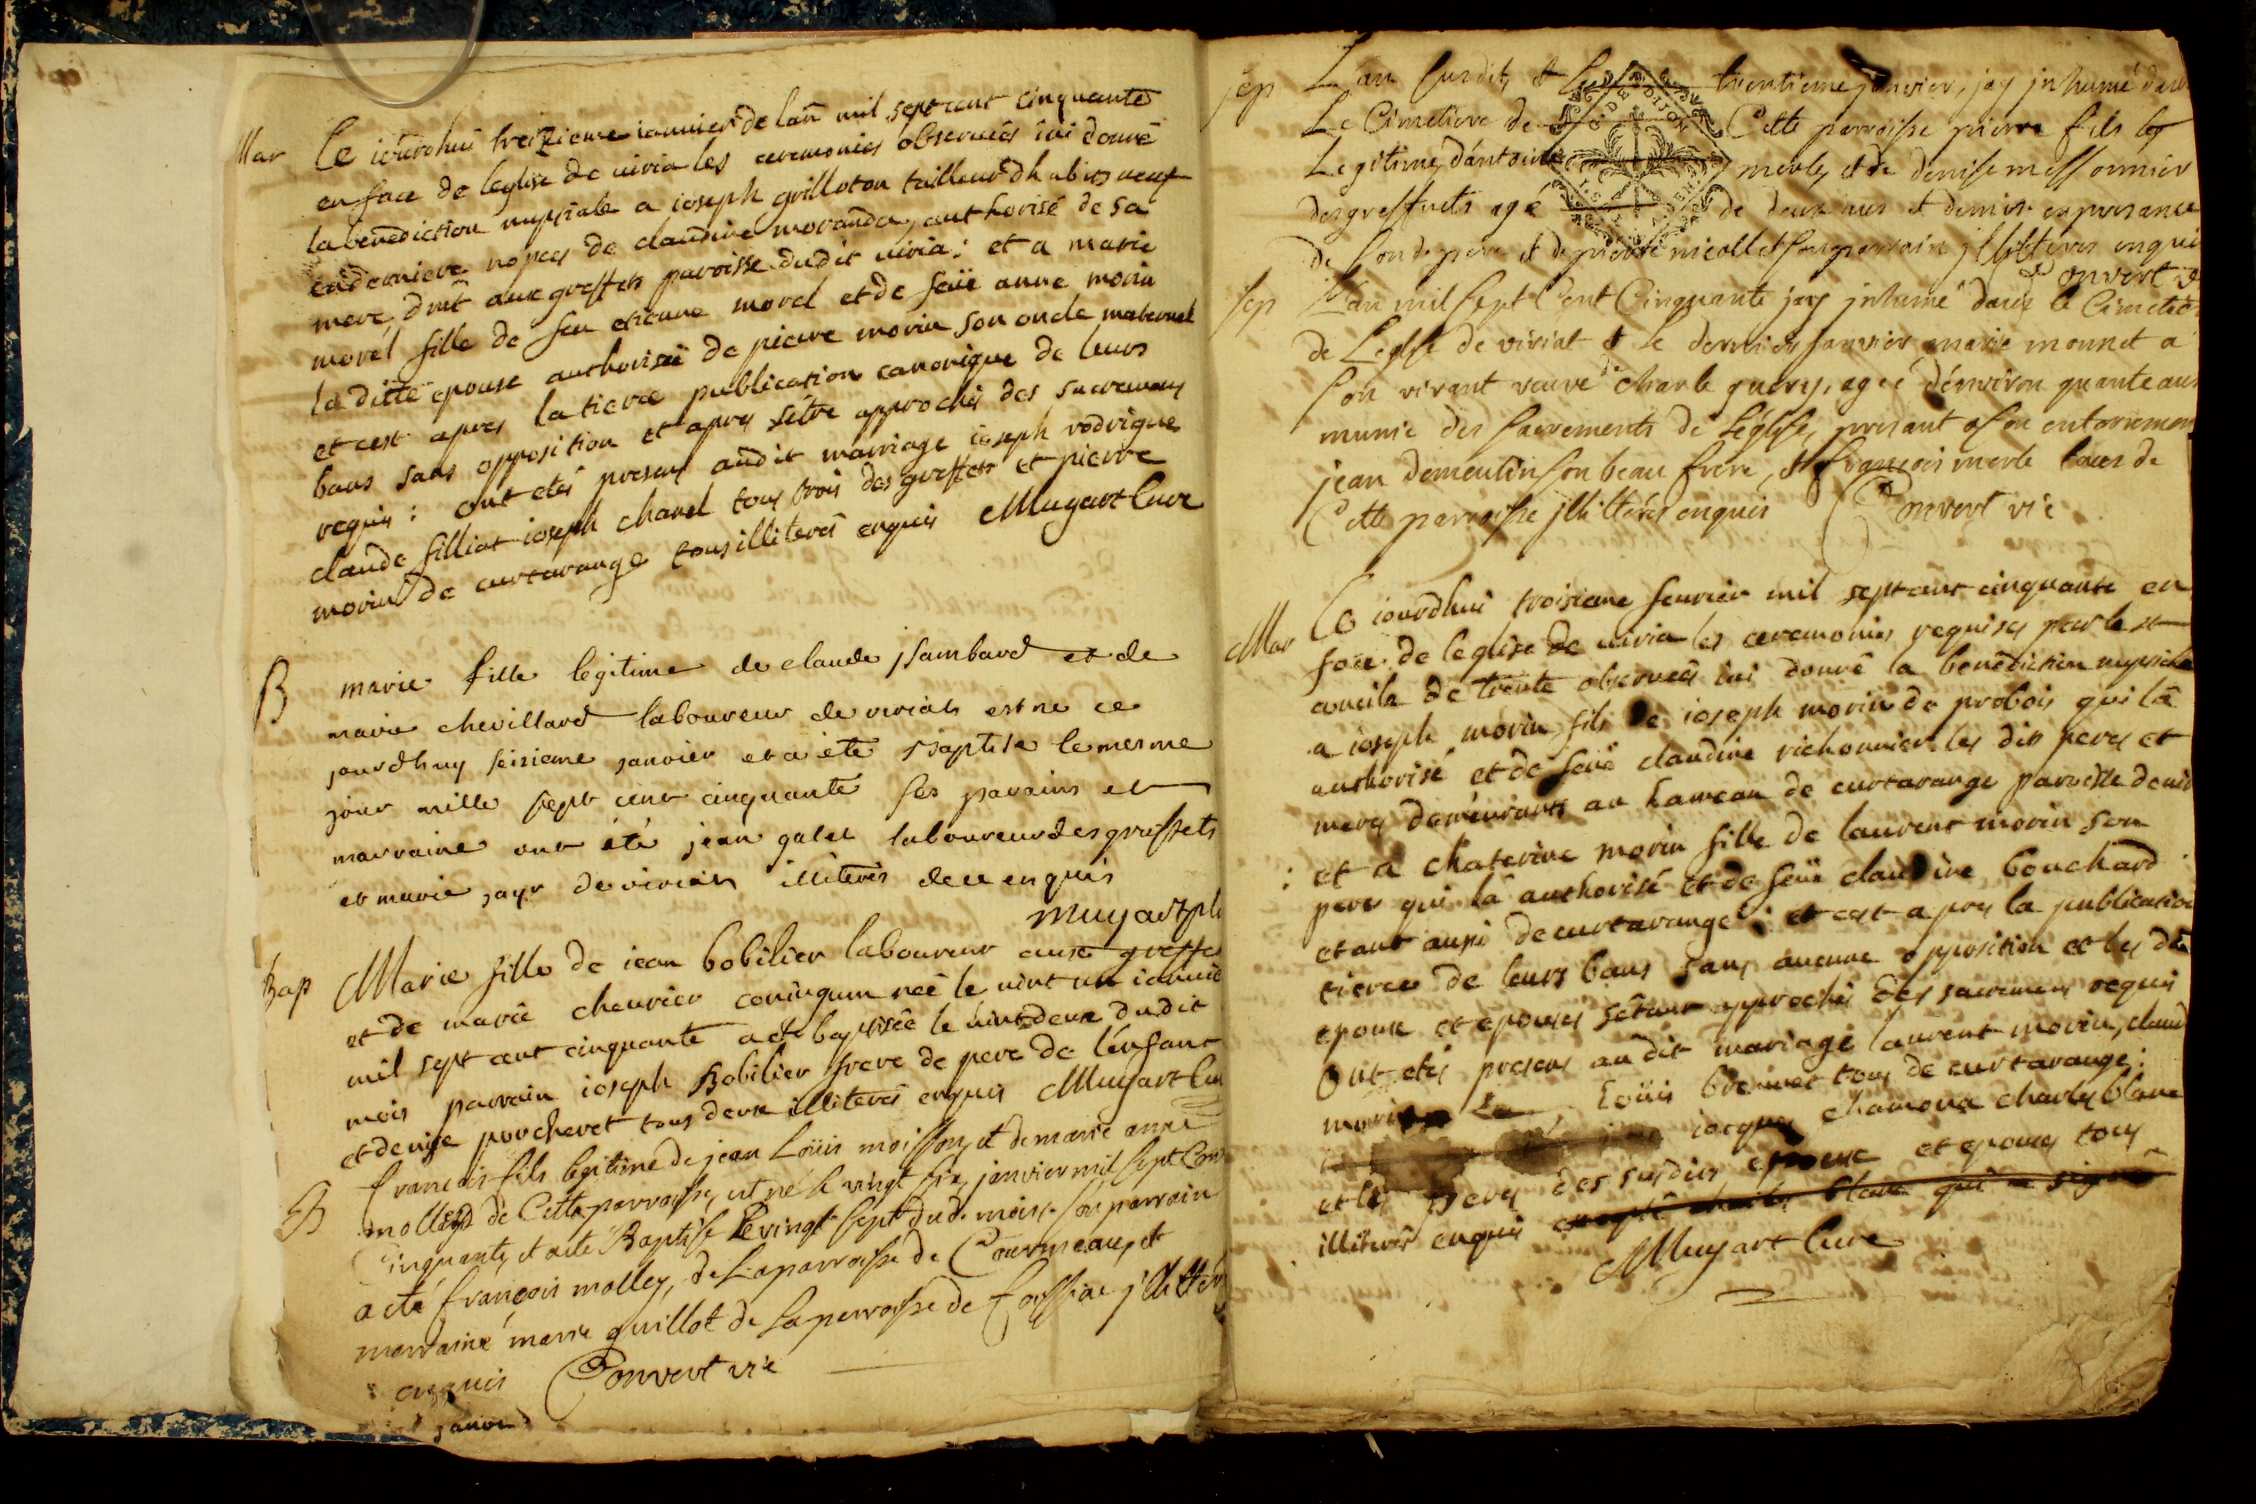 Mar Ce iourdhui treizieme ianuier de lan mil sept cent cinquante
en face de leglise de uiria les ceremonies obseruées iai donné
la benediction nuptiale a ioseph grilleton tailleur dhabits ueuf
en derniere nopces de claudine moranda, authorisé de sa
mere, dmt aux greffets paroisse dudit uiria: et a marie
morel fille de feu etienne morel et de feüe anne morin
la ditte epouse authorisée de pierre morin son oncle maternel
et cest apres la tierce publication canonique de leurs
bans sans opposition et apres setre approchés des sacremens
requis: ont etés presens audit marriage ioseph rodrigue
claude filliat ioseph chanel tous trois des greffets et pierre
morin de curtarange tous illiterés enquis Muyart Cure
B marie fille legitime de claude jsambard et de
marie chevillard laboureur de viriat est ne ce
jourdhuy seisieme janvier et a été Baptise le mesme
jour mille sept cent cinquante ses parains et
marraine ont été jean galet laboureur des greffets
et marie jayr de viriat illiterés de ce enquis
Muyart
Bap Marie fille de iean bobilier laboureur aux greffets
et de marie cheurier coniugum née le uint un ianuie
mil sept cent cinquante a eté baptisée le uint deux dudit
mois parrain ioseph Bobilier frere de pere de lenfant
et denise porcheret tous deux illiterés enquis Muyart Cur
B francois fils legitime de jean Loüis moisson, et de marie anne
mollard de Cette parroisse, est né le vingt six janvier mil sept Cent
Cinquante, et a ete Baptise Le vingt sept dud. mois. son parrain
a eté françois molley, de La parroisse de Courmeaux, et
marraine marie guillot de La parroisse de foissiac jllittér
enquis Convert vic
janvie
sep L'an susdit, et trentieme janvier, jay jnhumé dans
Le Cimetiere de Cette parroisse pierre fils leg
Legitime, d'antoine merle, et de denise messonnier
des greffuets agé de deux ans et demis en presance
de son d. pere et de pierre nicollet son parrain jllitterés enquis
Convert
sep L'an mil sept Cent Cinquante jay jnhumé dans le Cimetier
de L'eglise de viriat et le dernier janvier marie monnet a
son vivant veuve de charle guery, agée d'environ quante ans
munie des sacrements de L'église, presant a son enterremen
jean demoulin son beau frere, et françois merle tous de
Cette parroisse jllittérés enquis Convert vic
Mar Ce iourdhui troisieme feurier mil sept cent cinquante en
face de leglise de uiria les ceremonies requises par le st
concile de trente obseruées iai donné la benediction nuptiale
a ioseph morin fils de ioseph morin de probois qui la
authorisé et de feüe claudine richonnier les dits peres et
meres demeurants au hameau de curtarange paroisse de uir
: et a chaterine morin fille de laurent morin son
pere qui la authorisé et de feüe claudine bouchard
etant aussi de curtarange: et cest apres la publication
tierce de leurs bans sans aucune opposition et les dits
epoux et epouses setant approchés des sacremens requis
Ont etés presens audit mariage laurent morin, claud
morin Loüis brennet tous de curtarange;
iacques chamoux charles blanc
et les peres des susdits epoux et epouses tous
illiterés enquis excepté charles blanc qui a signé
Muyart Cure